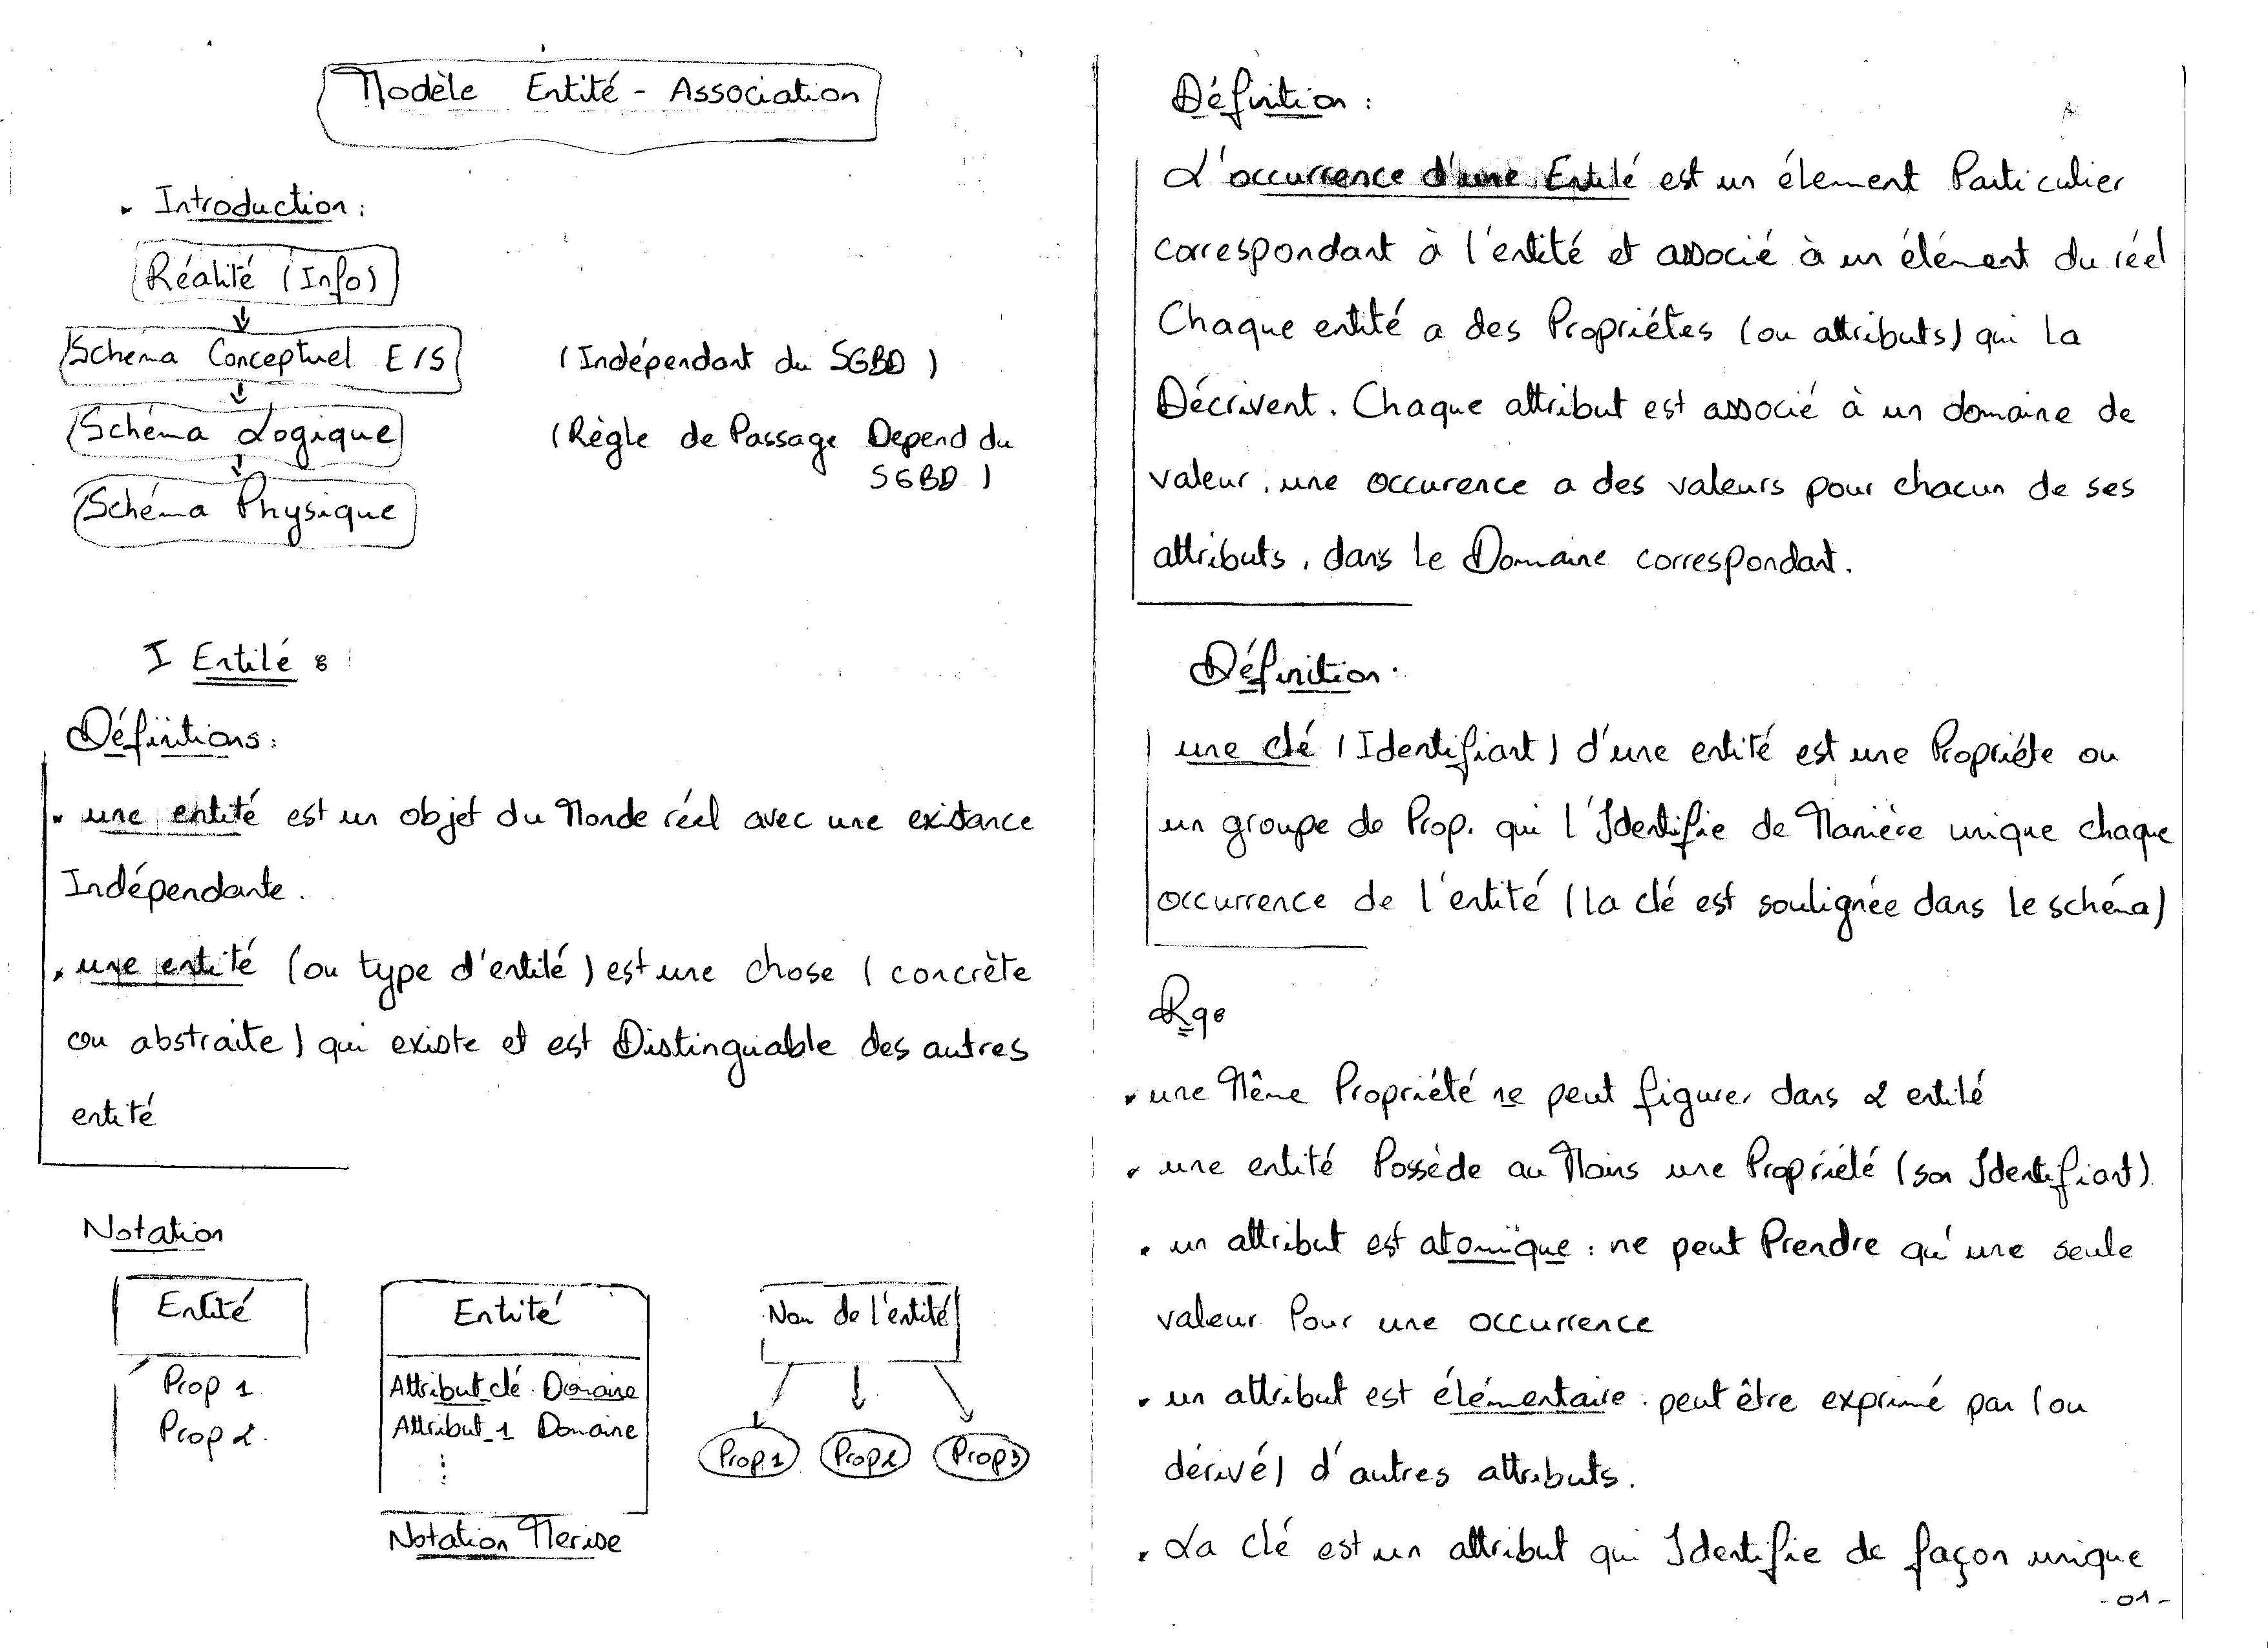 Modèle Entité - Association
• Introduction :
Réalité (Info)
Schéma Conceptuel E/S (Indépendant du SGBD)
Schéma Logique (Règle de Passage Depend du
SGBD)
Schéma Physique
I Entité :
Définitions :
• une entité est un objet du Monde réel avec une existance
Indépendante.
• une entité (ou type d'entité) est une chose (concrète
ou abstraite) qui existe et est Distinguable des autres
entité
Notation
Entité
Prop 1
Prop 2.
Entité
Attribut_clé Domaine
Attribut_1 Domaine
Notation Merise
Nom de l'entité
Prop1 Prop2 Prop3
Définition :
L'occurrence d'une Entité est un élement Particulier
correspondant à l'entité et associé à un élément du réel
Chaque entité a des Propriétes (ou attributs) qui la
Décrivent. Chaque attribut est associé à un domaine de
valeur, une occurence a des valeurs pour chacun de ses
attributs, dans le Domaine correspondant.
Définition.
une clé (Identifiant) d'une entité est une Propriéte ou
un groupe de Prop. qui l'Identifie de Manière unique chaque
occurrence de l'entité (la clé est soulignée dans le schéma)
Rq :
• une Même Propriété ne peut figurer dans 2 entité
• une entité Possède au Moins une Propriété (son Identifiant).
• un attribut est atomique : ne peut Prendre qu'une seule
valeur Pour une occurrence
• un attribut est élémentaire : peut être exprimé par (ou
dérivé) d'autres attributs.
• La clé est un attribut qui Identifie de façon unique
- 01 -